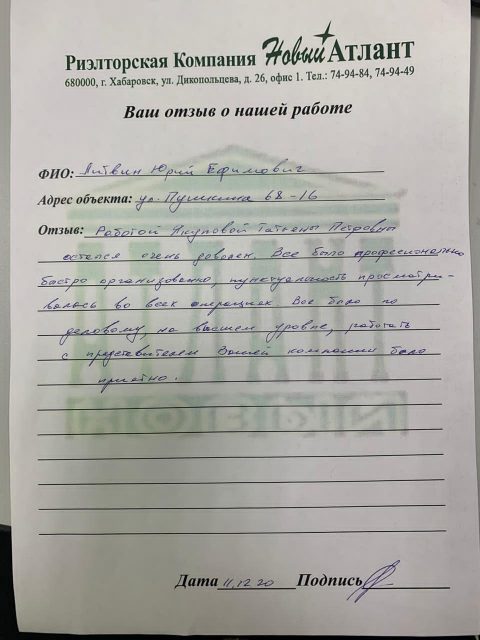 Риэлторская Компания Новый Атлант
680000, г. Хабаровск, ул. Дикопольцева, д. 26, офис 1. Тел.: 74-94-84, 74-94-49
Ваш отзыв о нашей работе
ФИО: Литвин Юрий Ефимович
Адрес объекта: ул. Пушкина 68-16
Отзыв: Работой Акуловой Татьяны Петровны
остался очень доволен. Все было професионально
быстро организованно, пунктуальность просматри-
валось во всех операциях Все было по
деловому, на высшем уровне, работать
с представителем Вашей компании было
приятно.
Дата 11,12 20 Подпись